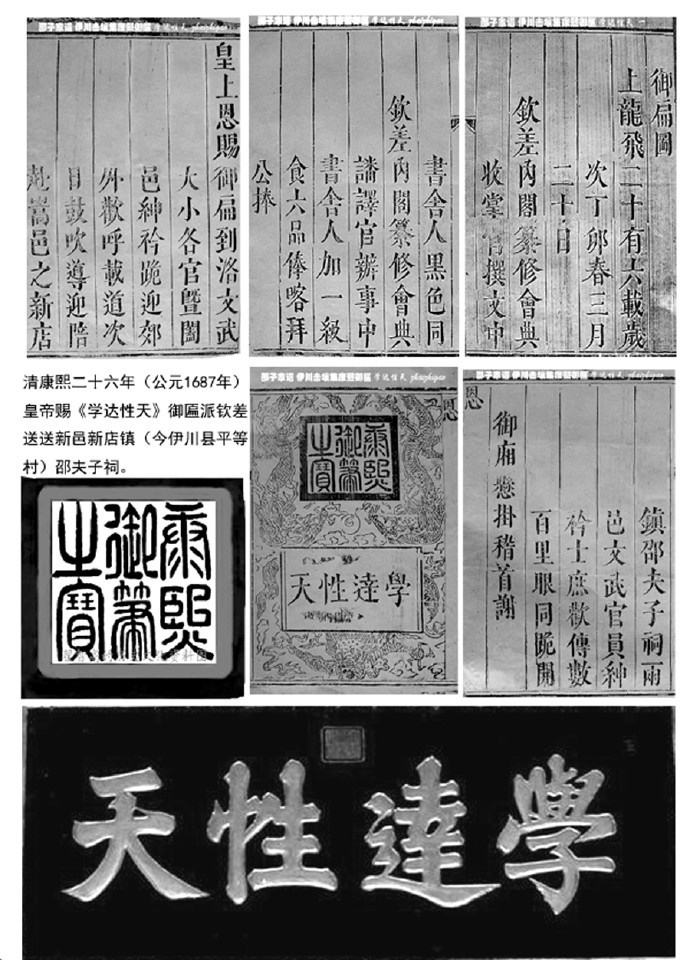 御扁圖
上龍飛二十有六載歲
次丁卯春三月
二十日
欽差內閣纂修會典
收掌官撰文中
書舍人黑色同
欽差內閣纂修會典
譒譯官辦事中
書舍人加一級
食六品俸喀拜
公捧
皇上恩賜御扁到洛文武
大小各官暨闔
邑紳衿跪迎郊
外歡呼載道次
日鼓吹導迎陪
赴嵩邑之新店
鎮邵夫子祠兩
邑文武官員紳
衿士庶歡傳數
百里服同跪開
御廂懸掛稽首謝
恩
恩
康熙
御筆
之寶
學達性天
清康熙二十六年（公元1687年）
皇帝赐《学达性天》御匾派钦差
送送新邑新店镇（今伊川县平等
村）邵夫子祠。
康熙
御筆
之寶
學達性天